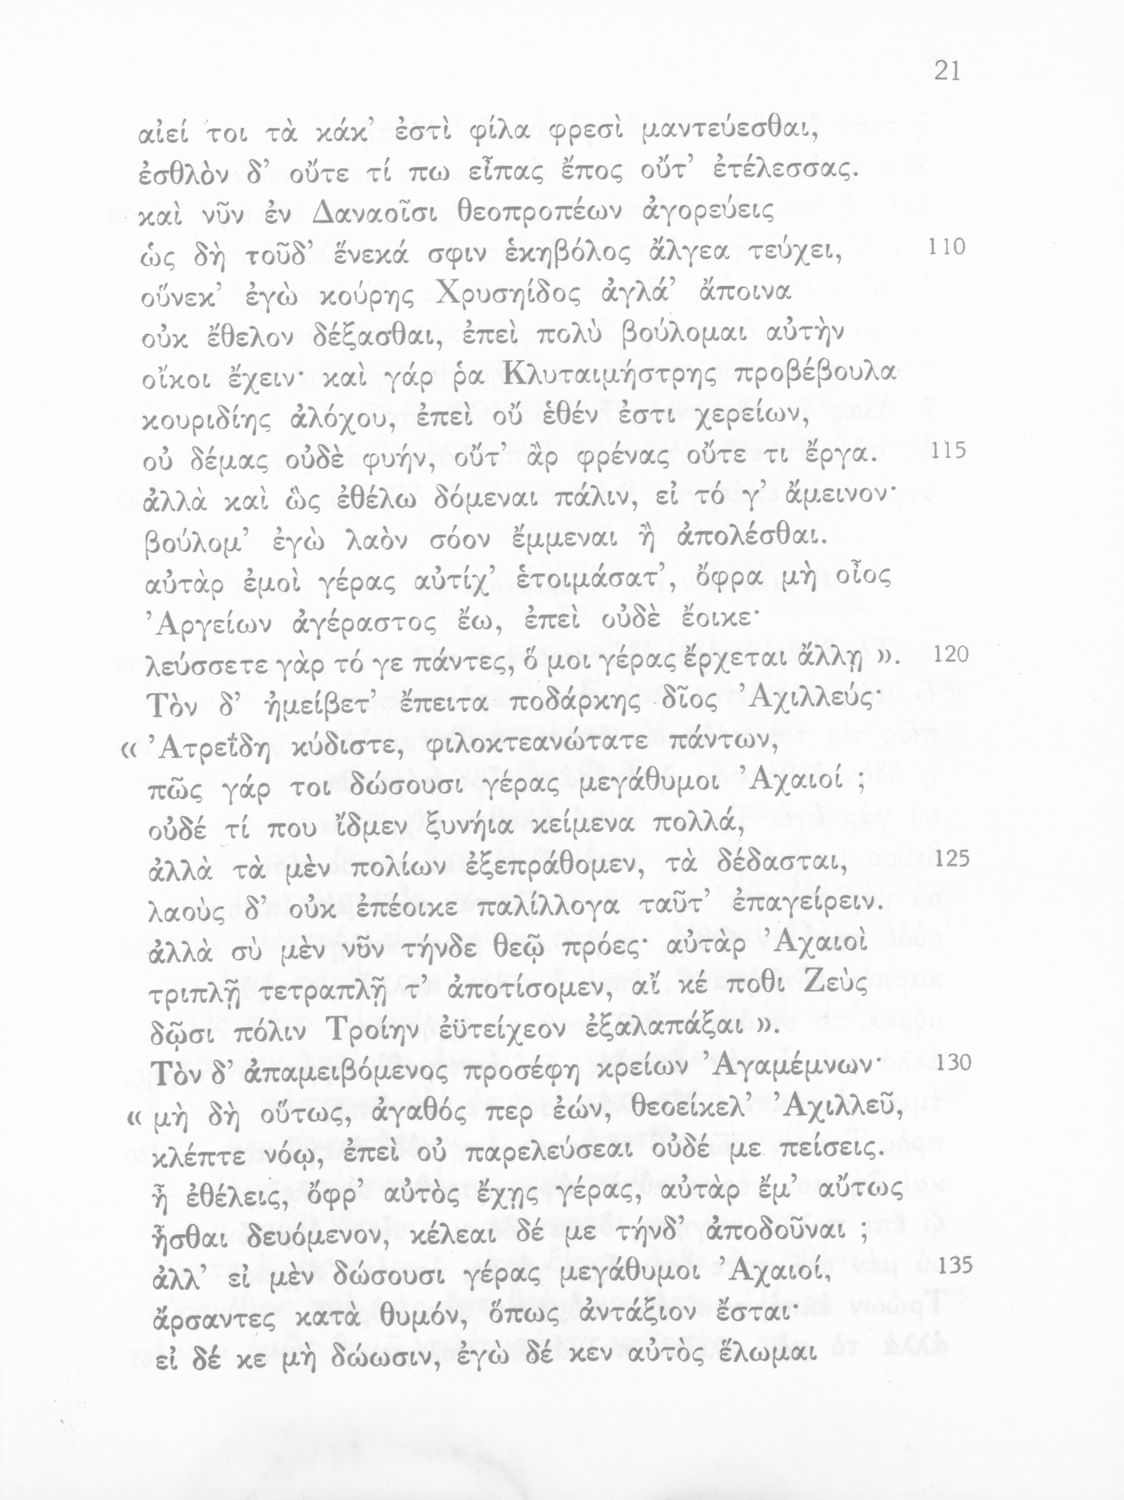 21
αἰεί τοι τὰ κάκ’ ἐστὶ φίλα φρεσὶ μαντεύεσθαι,
ἐσθλὸν δ’ οὔτε τί πω εἶπας ἔπος οὔτ’ ἐτέλεσσας.
καὶ νῦν ἐν Δαναοῖσι θεοπροπέων ἀγορεύεις
ὡς δὴ τοῦδ’ ἕνεκά σφιν ἑκηβόλος ἄλγεα τεύχει, 110
οὕνεκ’ ἐγὼ κούρης Χρυσηίδος ἀγλά’ ἄποινα
οὐκ ἔθελον δέξασθαι, ἐπεὶ πολὺ βούλομαι αὐτὴν
οἴκοι ἔχειν· καὶ γάρ ῥα Κλυταιμήστρης προβέβουλα
κουριδίης ἀλόχου, ἐπεὶ οὔ ἑθέν ἐστι χερείων,
οὐ δέμας οὐδὲ φυήν, οὔτ’ ἂρ φρένας οὔτε τι ἔργα. 115
ἀλλὰ καὶ ὣς ἐθέλω δόμεναι πάλιν, εἰ τό γ’ ἄμεινον·
βούλομ’ ἐγὼ λαὸν σόον ἔμμεναι ἢ ἀπολέσθαι.
αὐτὰρ ἐμοὶ γέρας αὐτίχ’ ἑτοιμάσατ’, ὄφρα μὴ οἶος
Ἀργείων ἀγέραστος ἔω, ἐπεὶ οὐδὲ ἔοικε·
λεύσσετε γὰρ τό γε πάντες, ὅ μοι γέρας ἔρχεται ἄλλῃ ». 120
Τὸν δ’ ἠμείβετ’ ἔπειτα ποδάρκης δῖος Ἀχιλλεύς·
« Ἀτρεΐδη κύδιστε, φιλοκτεανώτατε πάντων,
πῶς γάρ τοι δώσουσι γέρας μεγάθυμοι Ἀχαιοί ;
οὐδέ τί που ἴδμεν ξυνήια κείμενα πολλά,
ἀλλὰ τὰ μὲν πολίων ἐξεπράθομεν, τὰ δέδασται, 125
λαοὺς δ’ οὐκ ἐπέοικε παλίλλογα ταῦτ’ ἐπαγείρειν.
ἀλλὰ σὺ μὲν νῦν τήνδε θεῷ πρόες· αὐτὰρ Ἀχαιοὶ
τριπλῇ τετραπλῇ τ’ ἀποτίσομεν, αἴ κέ ποθι Ζεὺς
δῷσι πόλιν Τροίην ἐϋτείχεον ἐξαλαπάξαι ».
Τὸν δ’ ἀπαμειβόμενος προσέφη κρείων Ἀγαμέμνων· 130
« μὴ δὴ οὕτως, ἀγαθός περ ἐών, θεοείκελ’ Ἀχιλλεῦ,
κλέπτε νόῳ, ἐπεὶ οὐ παρελεύσεαι οὐδέ με πείσεις.
ἦ ἐθέλεις, ὄφρ’ αὐτὸς ἔχῃς γέρας, αὐτὰρ ἔμ’ αὔτως
ἧσθαι δευόμενον, κέλεαι δέ με τήνδ’ ἀποδοῦναι ;
ἀλλ’ εἰ μὲν δώσουσι γέρας μεγάθυμοι Ἀχαιοί, 135
ἄρσαντες κατὰ θυμόν, ὅπως ἀντάξιον ἔσται·
εἰ δέ κε μὴ δώωσιν, ἐγὼ δέ κεν αὐτὸς ἕλωμαι